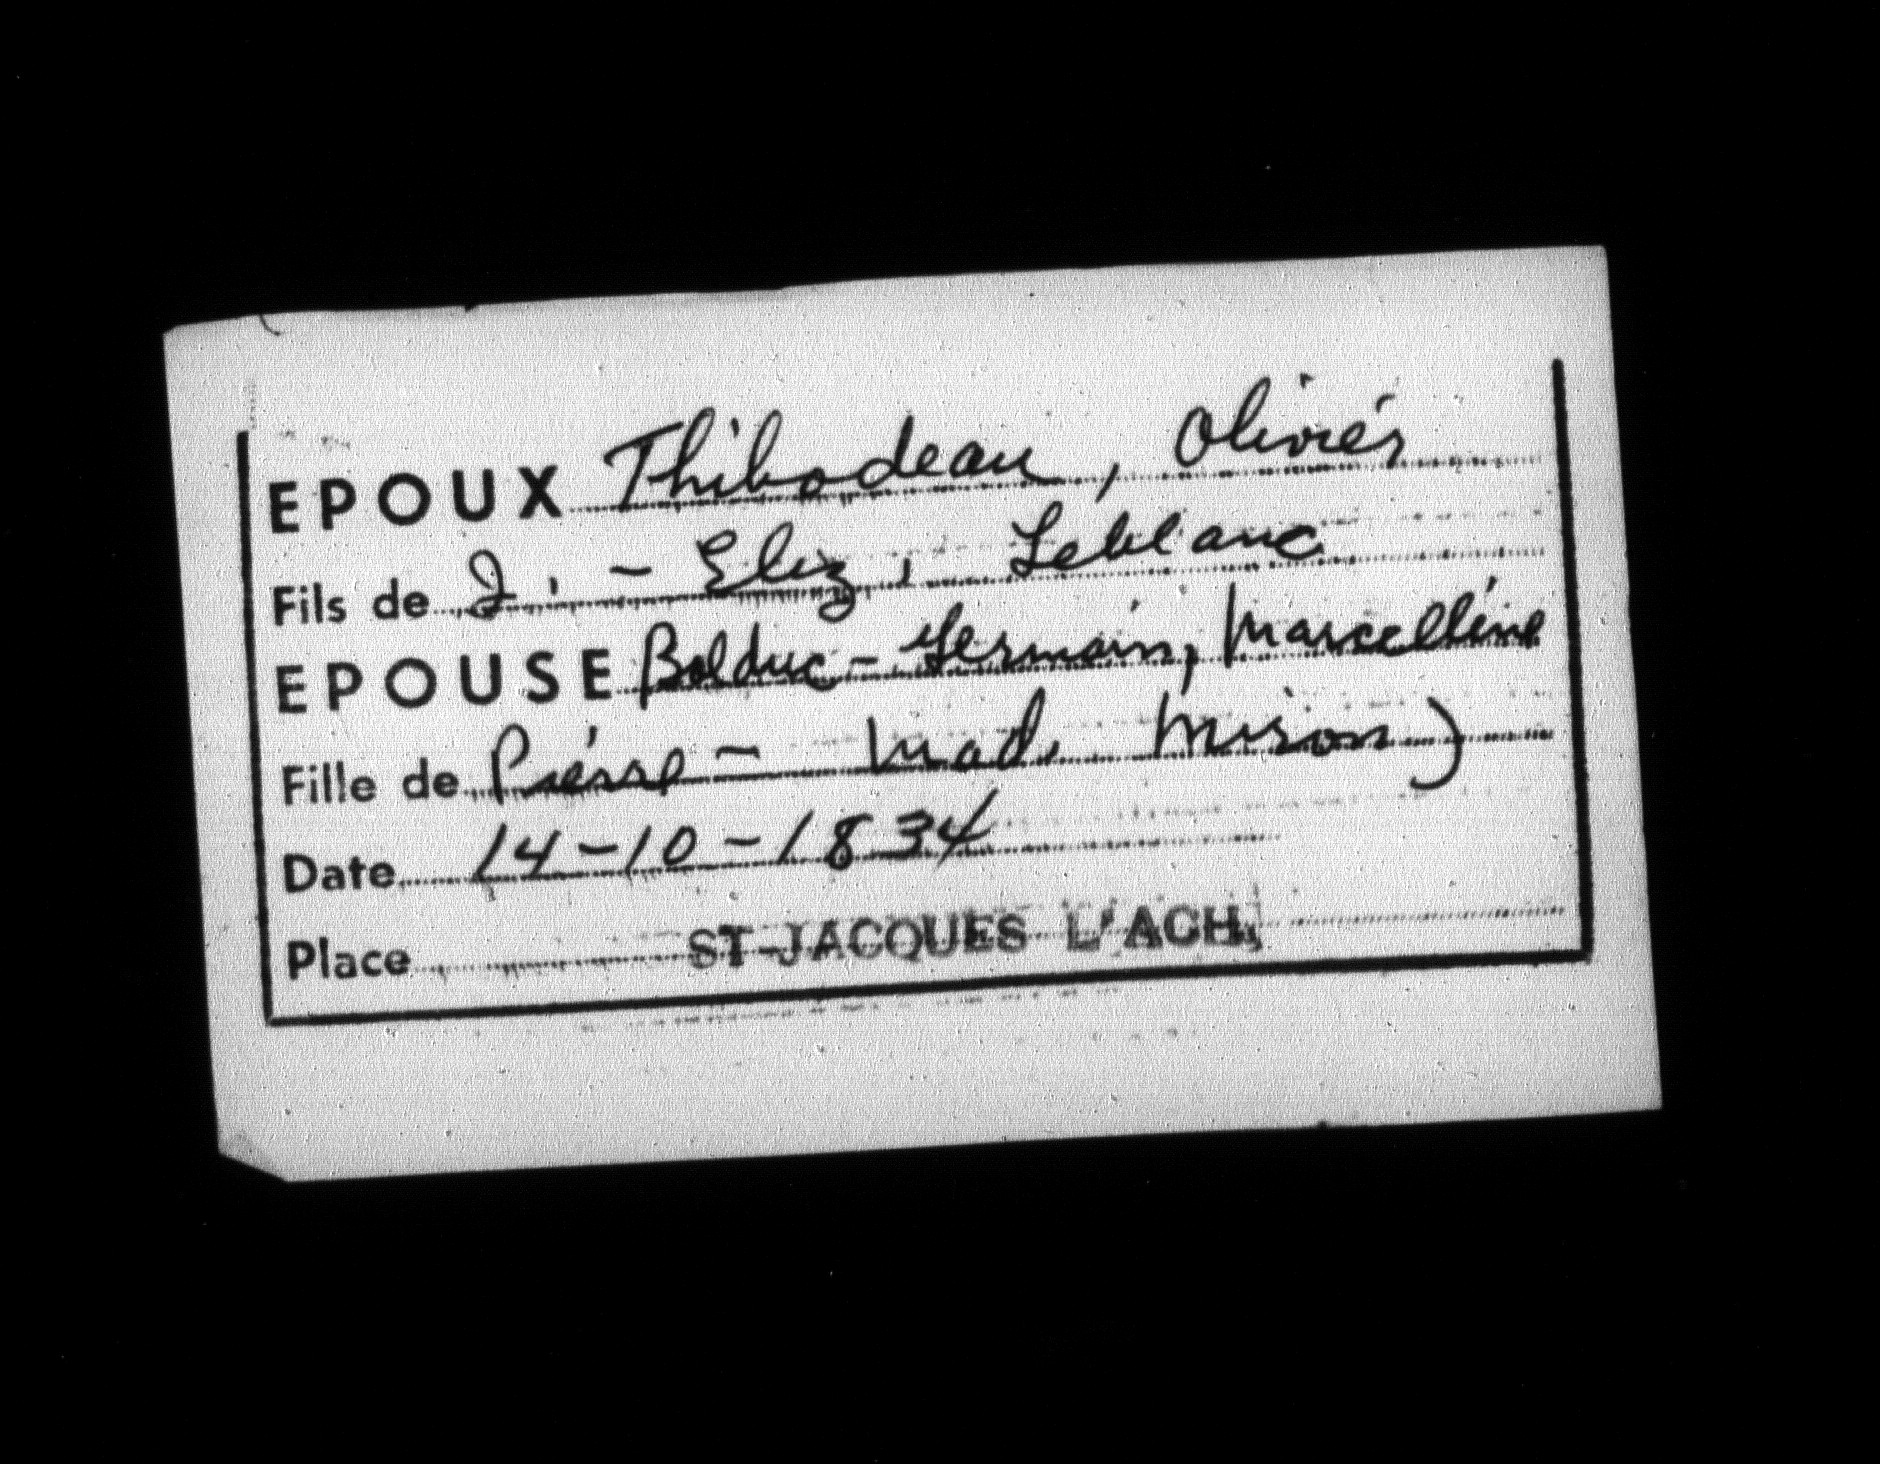 EPOUX Thibodeau, Olivier
Fils de J. - Eliz. Leblanc
EPOUSE Bolduc-Germain, Marcelline
Fille de Pierre - Mad. Miron)
Date 14-10-1834
Place ST-JACQUES L'ACH.